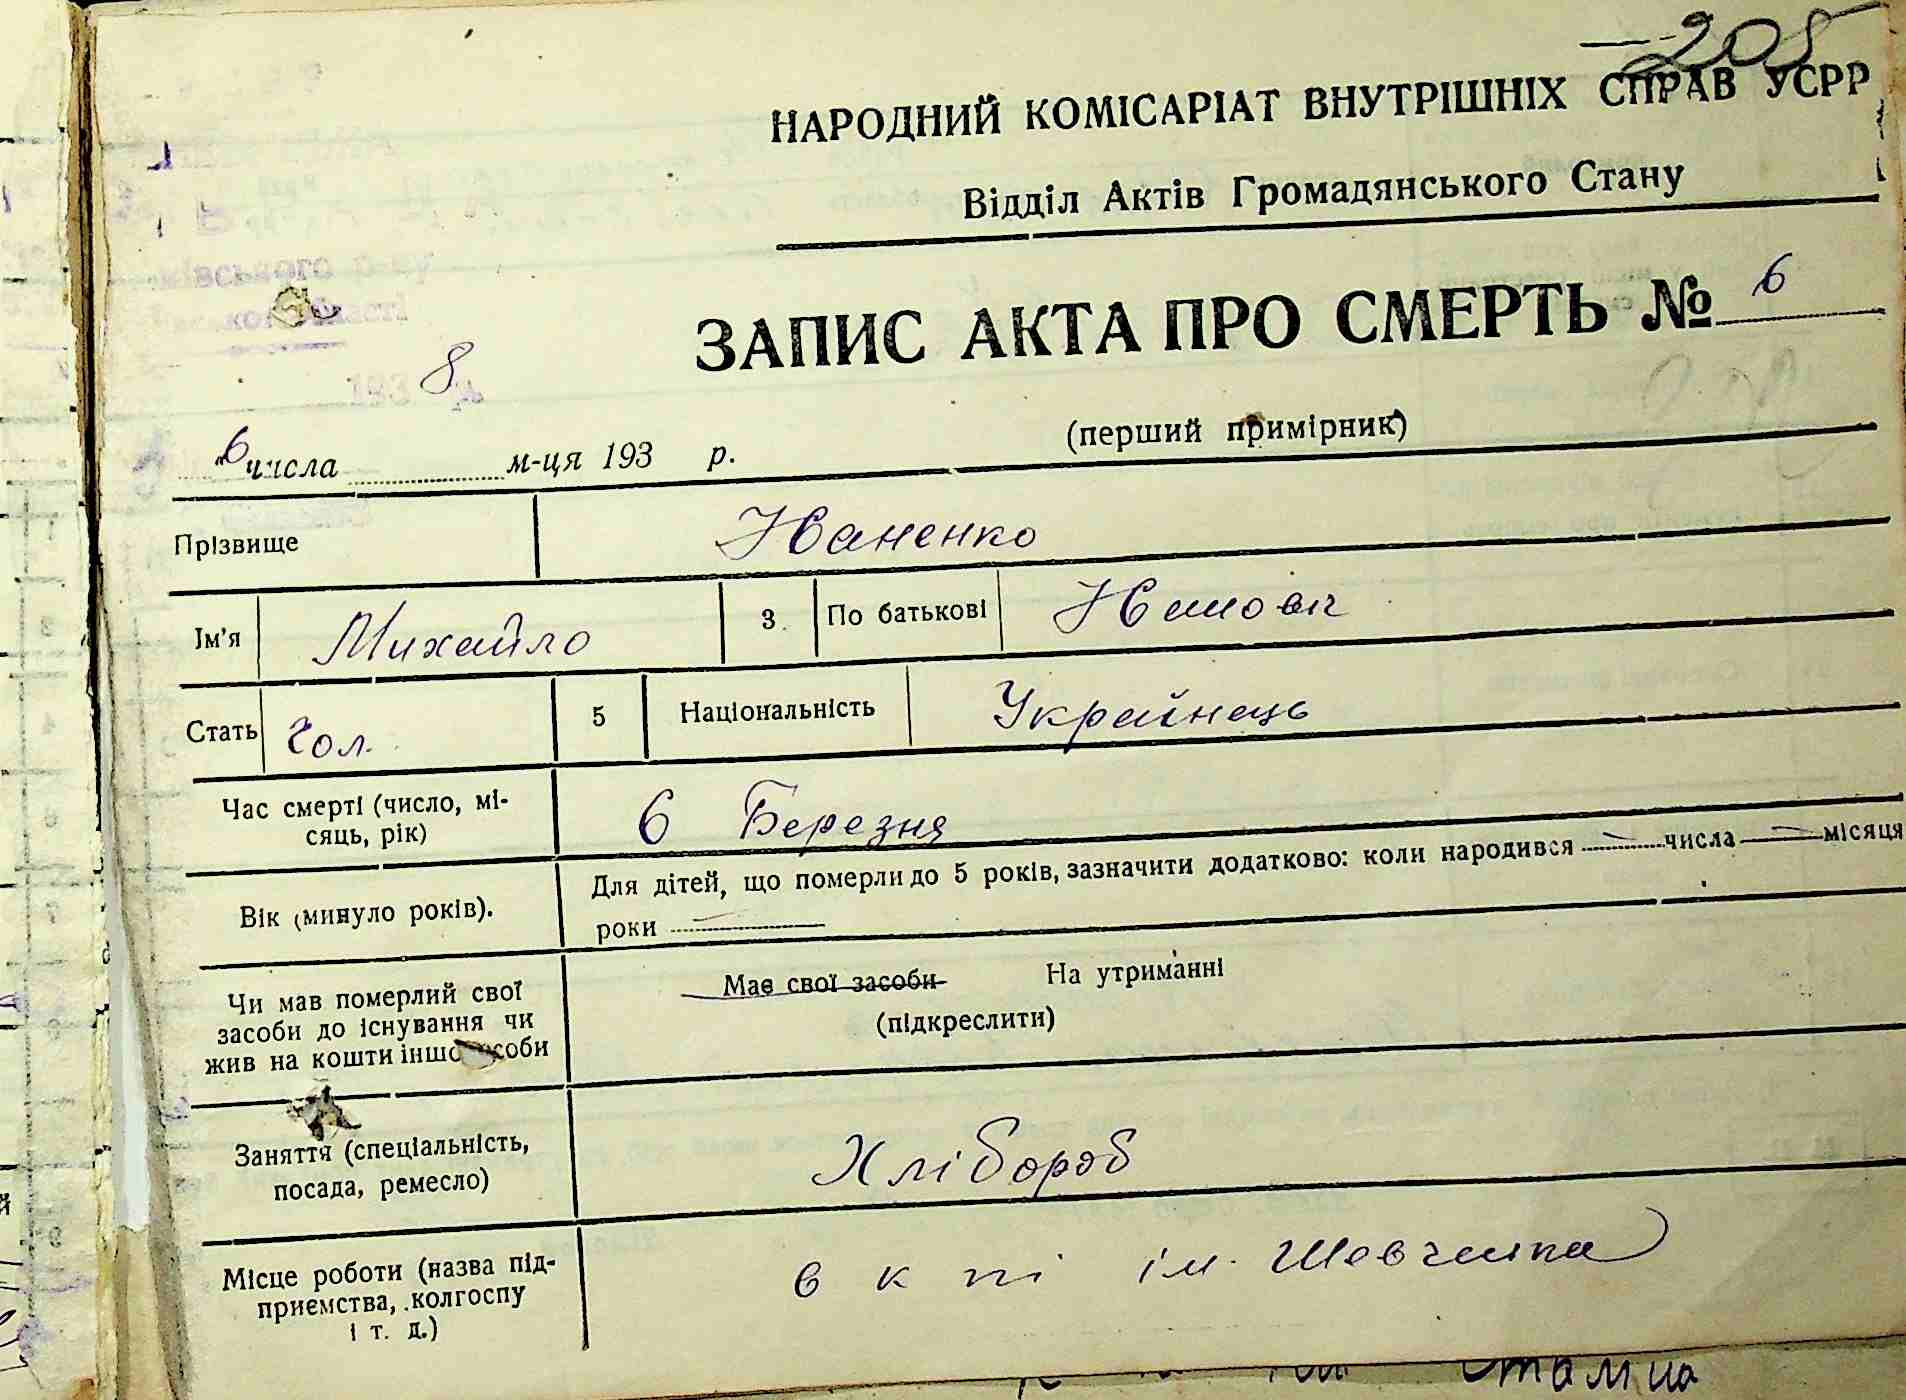 205
НАРОДНИЙ КОМІСАРІАТ ВНУТРІШНІХ СПРАВ УСРР
Відділ Актів Громадянського Стану
ЗАПИС АКТА ПРО СМЕРТЬ № 6
івського р-ну
області
193 8
(перший примірник)
6 числа м-ця 193 р.
Прізвище Іваненко
Ім'я Михайло 3. По батькові Іванович
Стать Чол. 5 Національність Українець
Час смерті (число, мі-
сяць, рік) 6 Березня
Вік (минуло років).
Для дітей, що померли до 5 років, зазначити додатково: коли народився числа місяця
роки
Чи мав померлий свої
засоби до існування чи
жив на кошти іншо особи
Має свої засоби На утриманні
(підкреслити)
Заняття (спеціальність,
посада, ремесло) Хлібороб
Місце роботи (назва під-
приємства, колгоспу
і т. д.)
в к пі ім. Шевченка